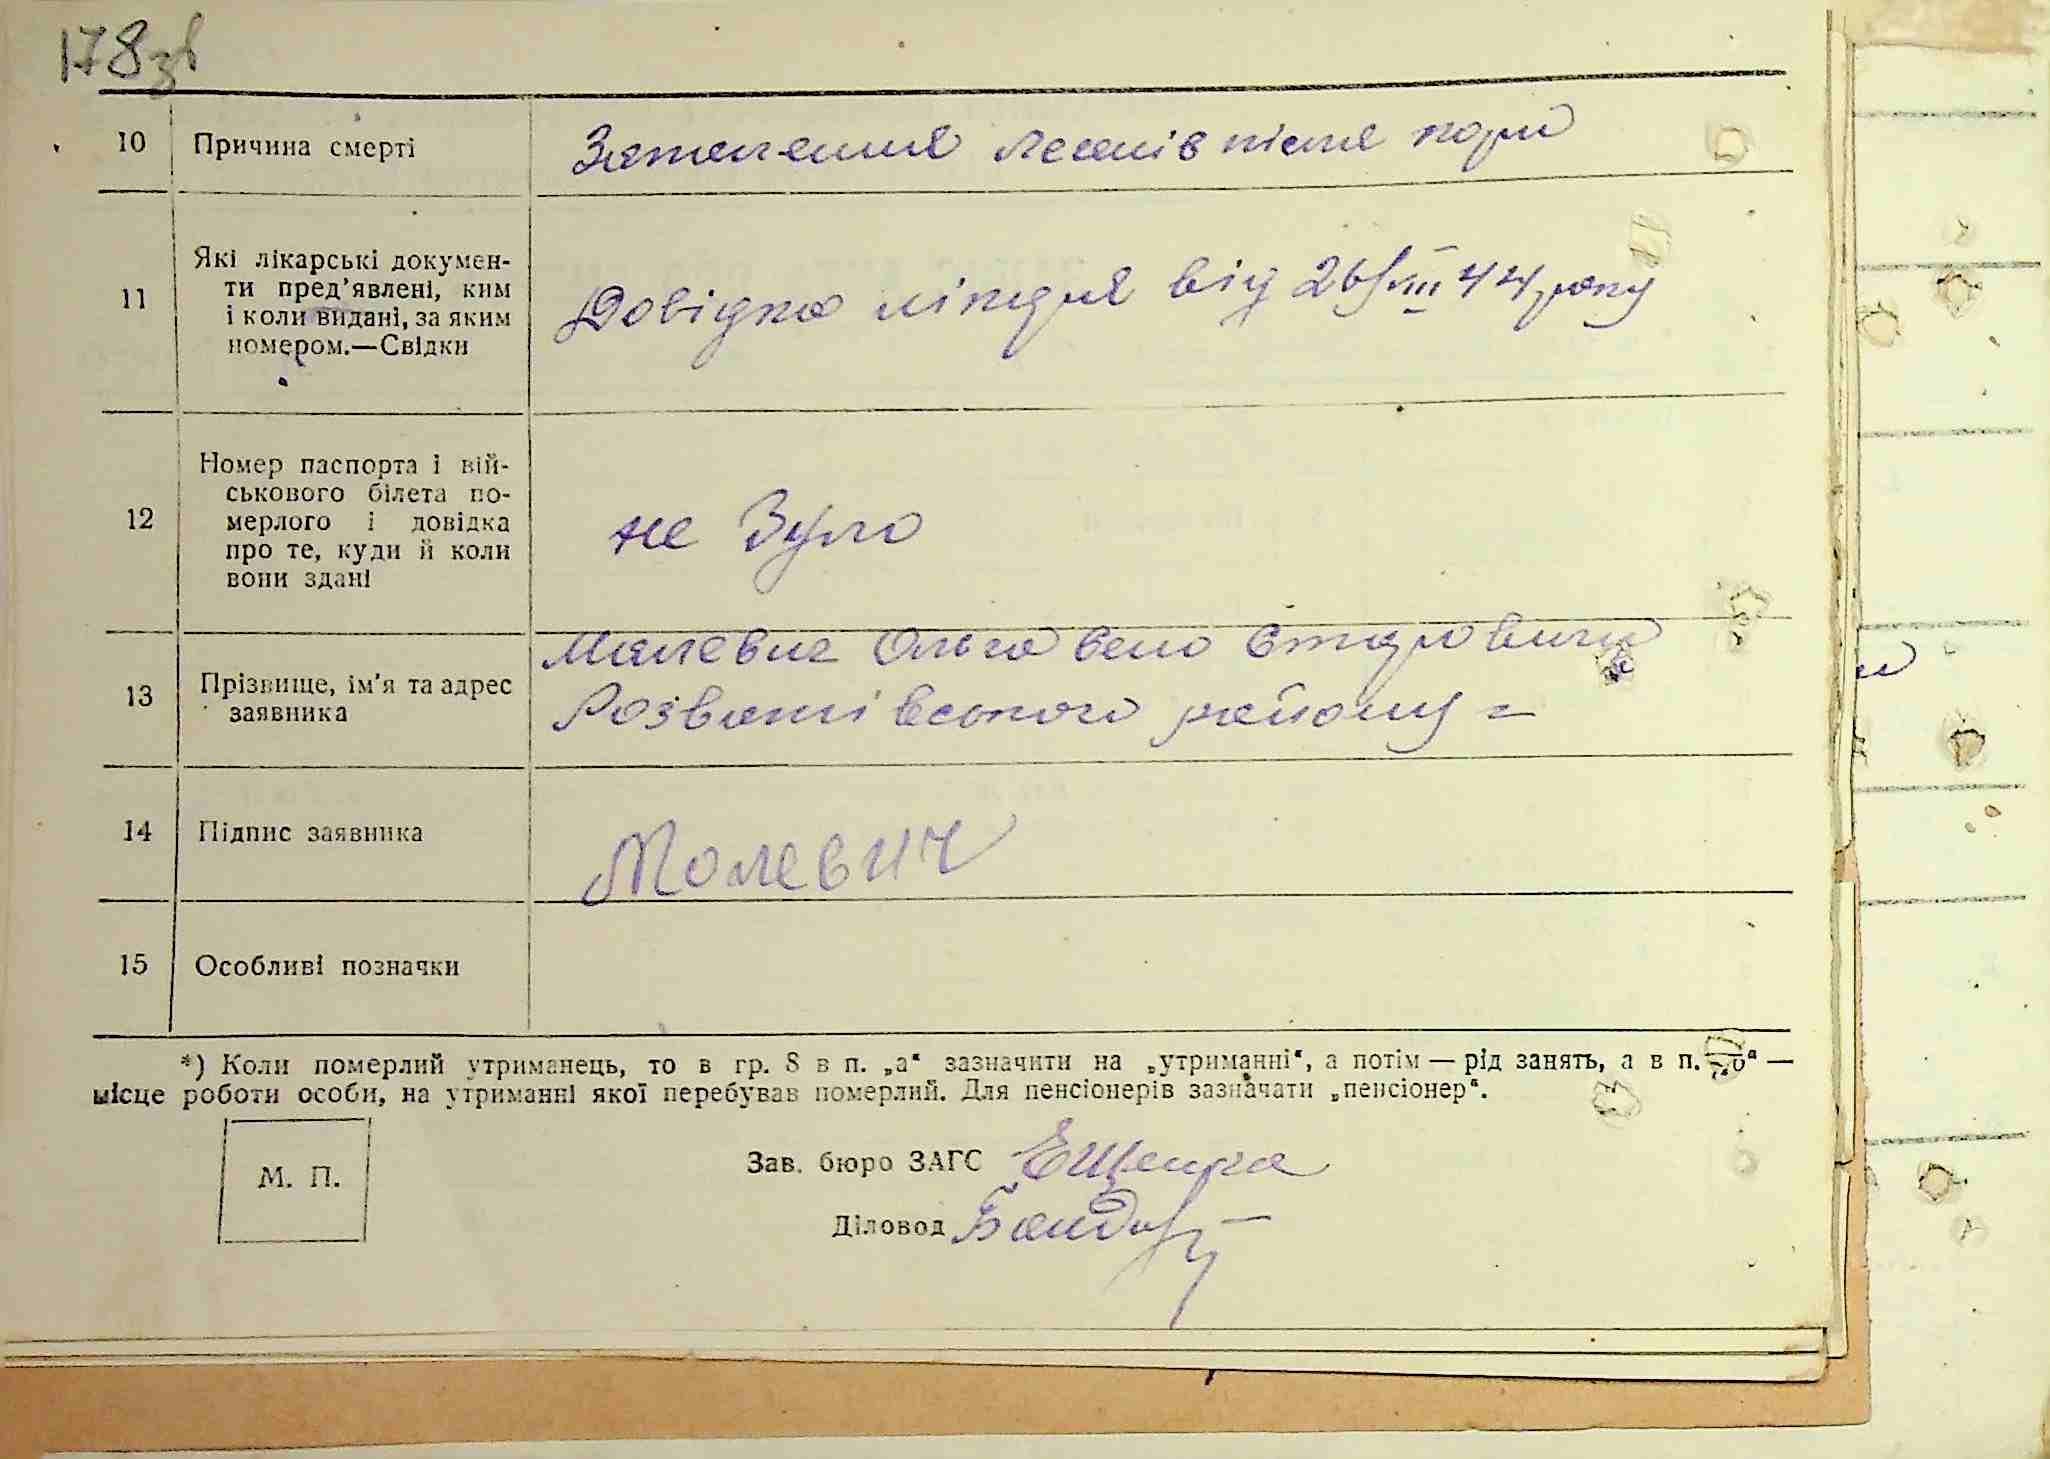 178зв
10 Причина смерті Запалення легенів після кори
11 Які лікарські докумен-
ти пред'явлені, ким
і коли видані, за яким
номером.—Свідки
Довідка лікаря від 26/VIII 44 року
12 Номер паспорта і вій-
ськового білета по-
мерлого і довідка
про те, куди й коли
вони здані
не було
13 Прізвище, ім'я та адрес
заявника
Малевич Ольга село
Розважівського району
14 Підпис заявника Молевич
15 Особливі позначки
*) Коли померлий утриманець, то в гр. 8 в п. „а“ зазначити на „утриманні“, а потім — рід занять, а в п. —
місце роботи особи, на утриманні якої перебував померлий. Для пенсіонерів зазначати „пенсіонер“.
М. П.
Зав. бюро ЗАГС
Діловод